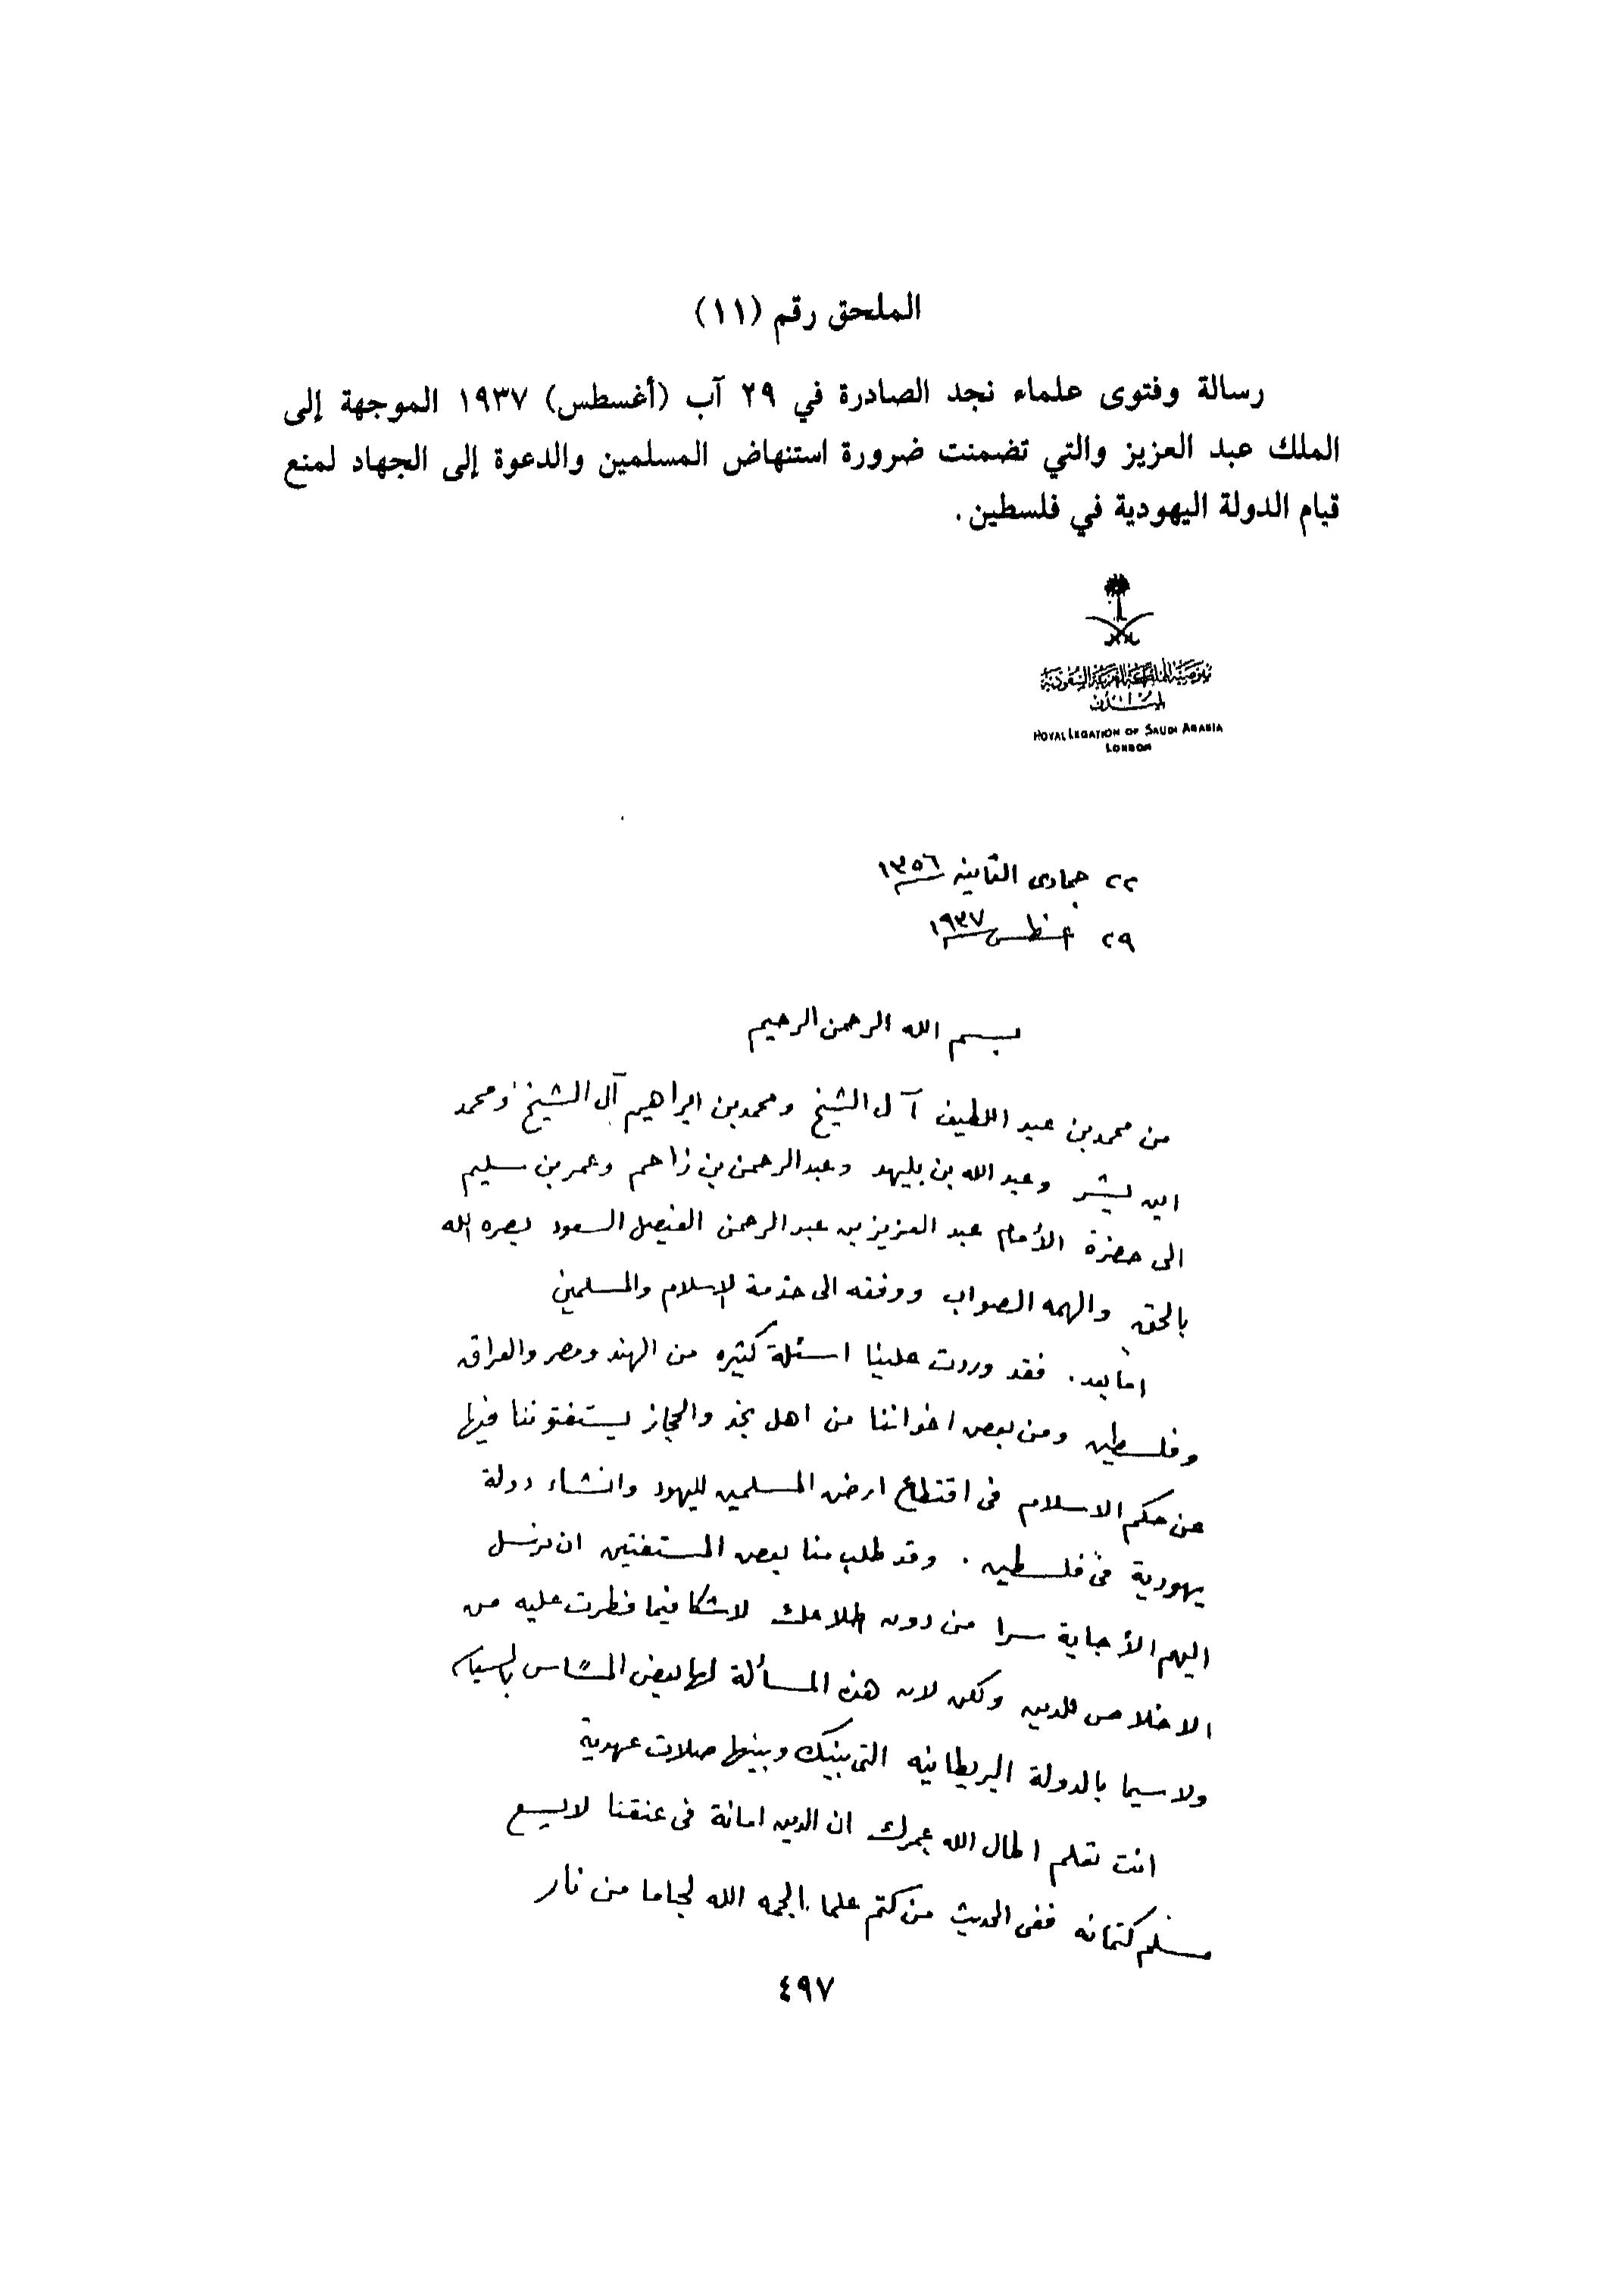 الملحق رقم (١١)
رسالة وفتوى علماء نجد الصادرة في ٢٩ آب (أغسطس) ١٩٣٧ الموجهة إلى
الملك عبد العزيز والتي تضمنت ضرورة استنهاض المسلمين والدعوة إلى الجهاد لمنع
قيام الدولة اليهودية في فلسطين.
المملكة العربية السعودية
بلندن
ROYAL LEGATION OF SAUDI ARABIA
LONDON
٢٢ جمادى الثانيه ١٣٥٦
٢٩ ١٩٣٧
بسم الله الرحمن الرحيم
من محمد بن عبد اللطيف آل الشيخ ومحمد بن ابراهيم آل الشيخ ومحمد
ابن بشر وعبد الله بن بليهد وعبد الرحمن بن زاحم وعمر بن سليم
الى حضرة الأمام عبد العزيز بن عبد الرحمن الفيصل السعود بصره الله
بالحق والهمه الصواب ووفقه الى خدمة الاسلام والمسلمين
اما بعد. فقد وردت علينا اسئلة كثيره من الهند ومصر والعراق
وفلسطين ومن بعض اخواننا من اهل نجد والحجاز يستفتوننا فيها
عن حكم الاسلام فى اقتطاع ارض المسلمين لليهود وانشاء دولة
يهودية فى فلسطين . وقد طلب منا بعض المستفتين ان نرسل
اليهم الأجابة سرا من دون اطلاعك لا شكا فيما فطرت عليه من
الاخلاص للدين ولكن لان هذه المسألة لها بعض المساس بالسياسة
ولا سيما بالدولة البريطانيه التى بينك وبينها صلات عهدية
انت تعلم اطال الله عمرك ان الدين امانة فى عنقنا لا يسع
مسلم كتمانه ففى الحديث من كتم علما الجمه الله لجاما من نار
٤٩٧